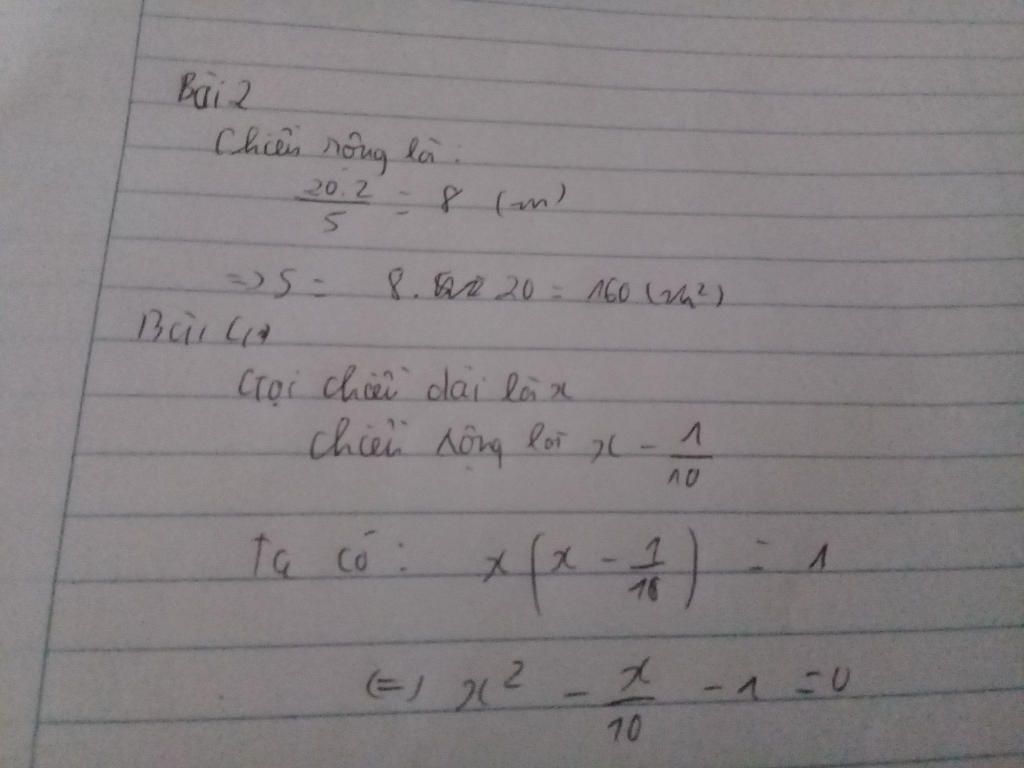 Bài 2
Chiều rộng là:
20.2/5 = 8 (m)
=> S = 8. 20 = 160 (m²)
Bài
Gọi chiều dài là x
chiều rộng là x - 1/10
Ta có: x(x - 1/10) = 1
(=) x² - x/10 - 1 = 0